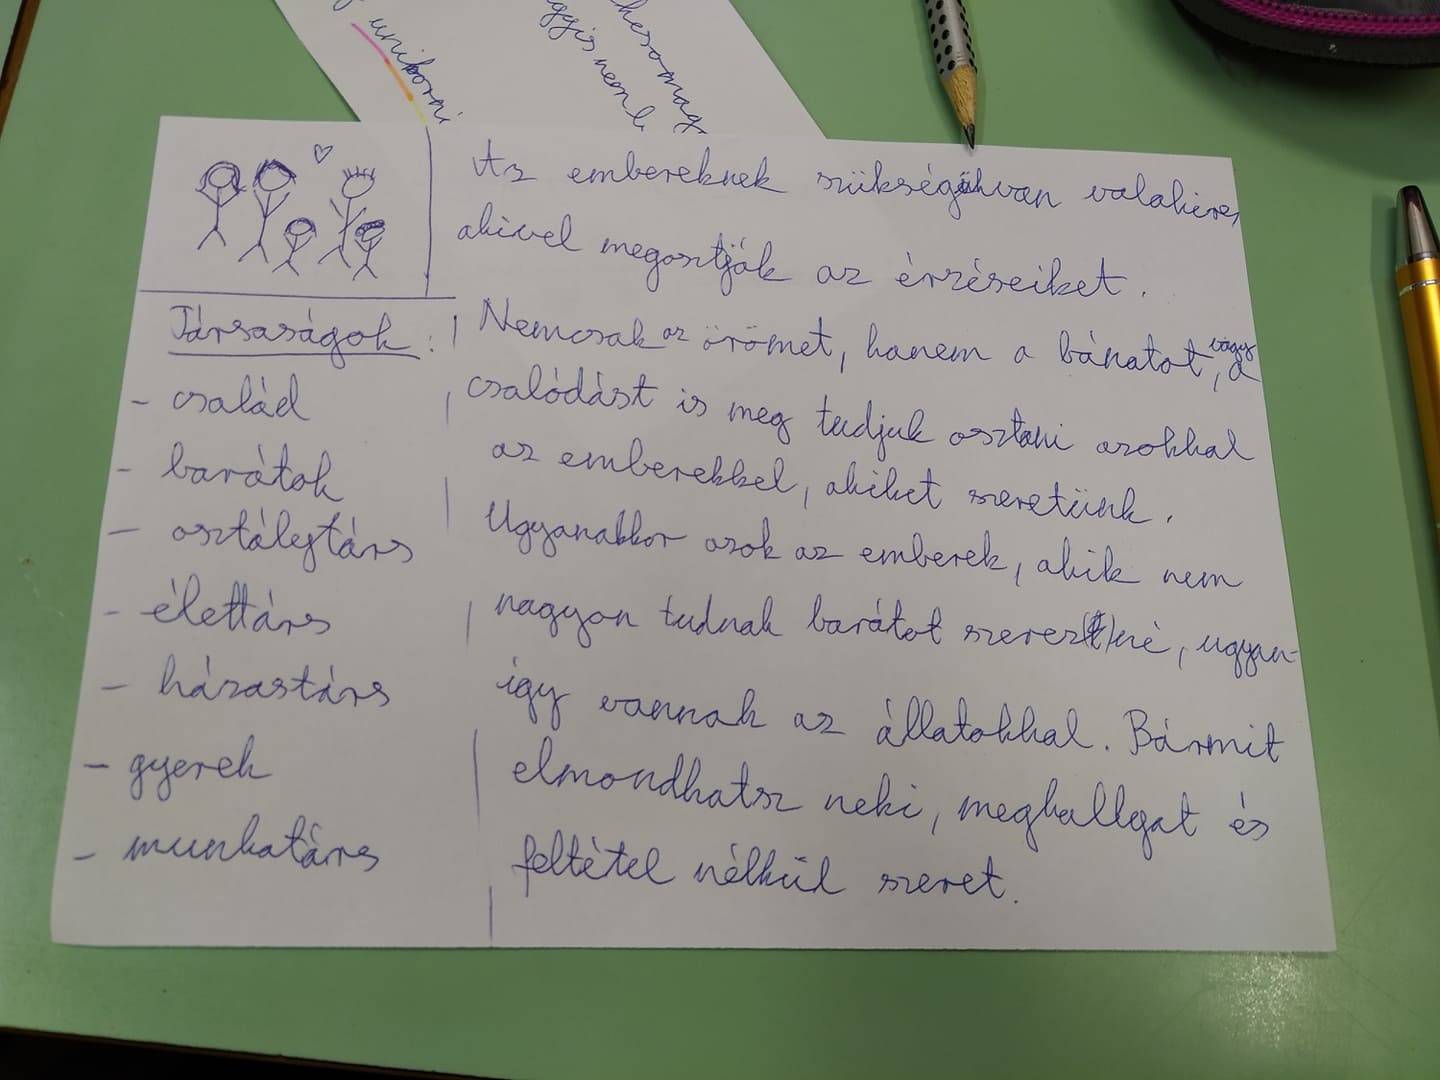 unikorni
Az embereknek szükségükvan valakire,
akivel megosztják az érzéseiket.
Nemcsak az örömet, hanem a bánatot, vagy a
csalódást is meg tudjuk osztani azokkal
az emberekkel, akiket szeretünk.
Ugyanakkor azok az emberek, akik nem
nagyon tudnak barátot szerez(t)né, ugyan-
így vannak az állatokkal. Bármit
elmondhatsz neki, meghallgat és
feltétel nélkül szeret.
Társaságok:
- család
- barátok
- osztálytárs
- élettárs
- házastárs
- gyerek
- munkatárs